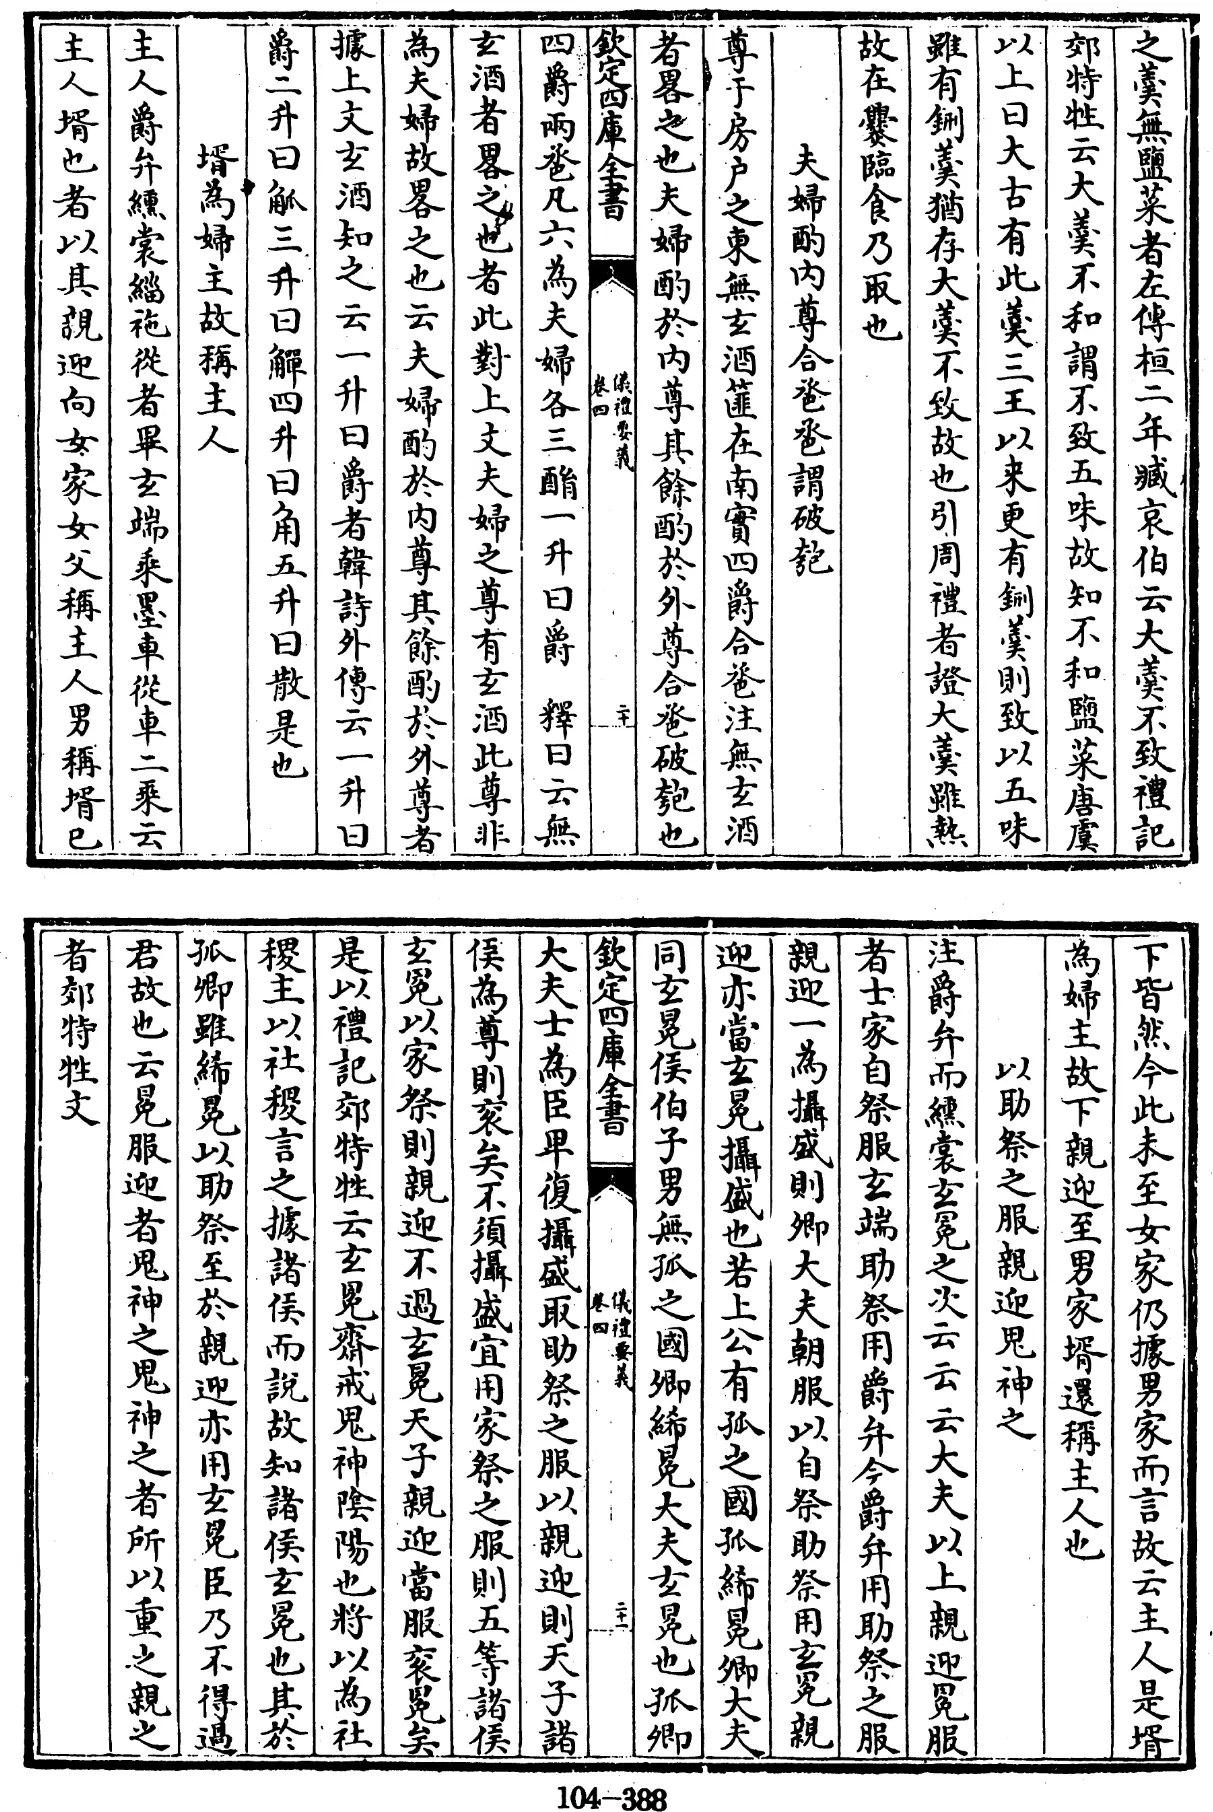 之羹無鹽菜者左傳桓二年臧哀伯云大羹不致禮記
郊特牲云大羹不和謂不致五味故知不和鹽菜唐虞
以上曰大古有此羹三王以来更有鉶羹則致以五味
雖有鉶羹猶存大羹不致故也引周禮者證大羹雖熱
故在爨臨食乃取也
夫婦酌内尊合卺卺謂破匏
尊于房户之東無玄酒篚在南實四爵合卺注無玄酒
者畧之也夫婦酌於内尊其餘酌於外尊合卺破匏也
欽定四庫全書
儀禮要義
卷四
二十
四爵兩卺凡六為夫婦各三酳一升曰爵 釋曰云無
玄酒者畧之也者此對上文夫婦之尊有玄酒此尊非
為夫婦故畧之也云夫婦酌於内尊其餘酌於外尊者
據上文玄酒知之云一升曰爵者韓詩外傳云一升曰
爵二升曰觚三升曰觶四升曰角五升曰散是也
壻為婦主故稱主人
主人爵弁纁裳緇袘從者畢玄端乘墨車從車二乘云
主人壻也者以其親迎向女家女父稱主人男稱壻已
下皆然今此未至女家仍據男家而言故云主人是壻
為婦主故下親迎至男家壻還稱主人也
以助祭之服親迎鬼神之
注爵弁而纁裳玄冕之次云云云大夫以上親迎冕服
者士家自祭服玄端助祭用爵弁今爵弁用助祭之服
親迎一為攝盛則卿大夫朝服以自祭助祭用玄冕親
迎亦當玄冕攝盛也若上公有孤之國孤絺冕卿大夫
同玄冕侯伯子男無孤之國卿絺冕大夫玄冕也孤卿
欽定四庫全書
儀禮要義
卷四
二十一
大夫士為臣卑復攝盛取助祭之服以親迎則天子諸
侯為尊則衮矣不須攝盛宜用家祭之服則五等諸侯
玄冕以家祭則親迎不過玄冕天子親迎當服衮冕矣
是以禮記郊特牲云玄冕齋戒鬼神陰陽也將以為社
稷主以社稷言之據諸侯而說故知諸侯玄冕也其於
孤卿雖絺冕以助祭至於親迎亦用玄冕臣乃不得過
君故也云冕服迎者鬼神之鬼神之者所以重之親之
者郊特牲文
104-388